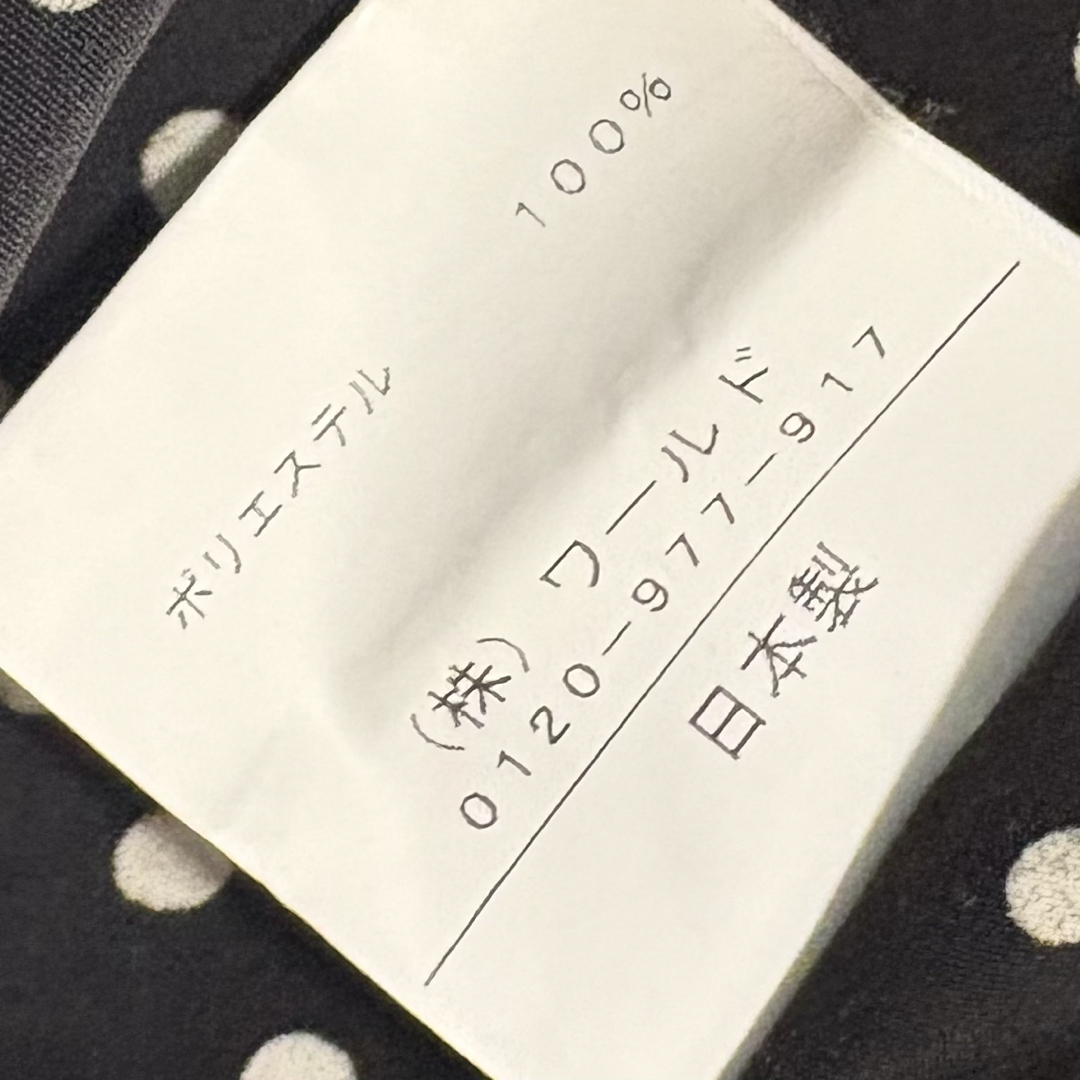 ポリエステル　　100%
(株)　ワールド
0120-977-917
日本製